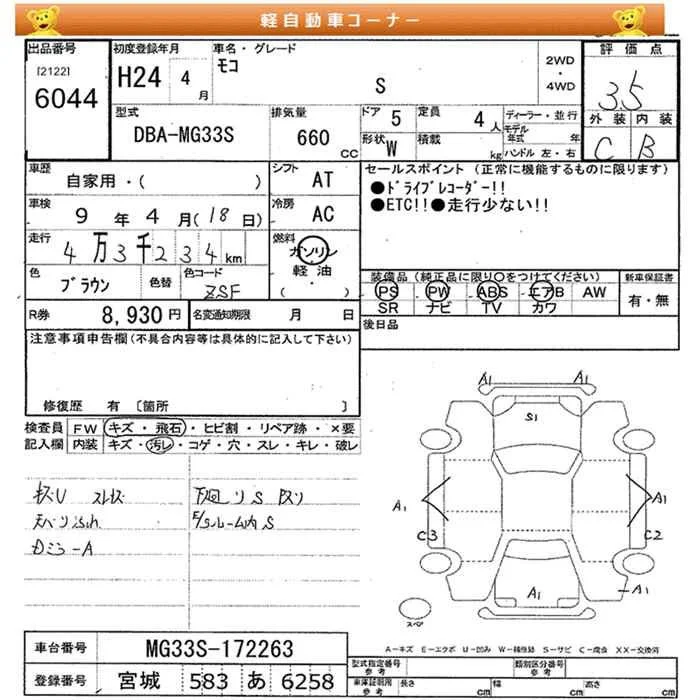 軽自動車コーナー
出品番号
[2122]
6044
初度登録年月
H24 4 月
車名・グレード
モコ
S
2WD
・
4WD
評価点
3.5
外装 内装
C B
型式
DBA-MG33S
排気量
660 CC
ドア 5
定員 4 人
形状 W
積載 kg
ディーラー・並行
モデル年式 年
ハンドル 左・右
車歴
自家用・( )
シフト AT
車検
9 年 4 月 (18 日)
冷房 AC
走行
4 万 3 千 2 3 4 km
燃料
ガソリン
軽油
( ・ )
色 ブラウン
色替
色コード
ZSF
セールスポイント (正常に機能するものに限ります)
●ドライブレコーダー!!
●ETC!!●走行少ない!!
装備品 (純正品に限り○をつけてください)
PS PW ABS エアB AW
SR ナビ TV カワ
新車保証書
有・無
R券 8,930 円
名変通知期限 月 日
後日品
注意事項申告欄(不具合内容等は具体的に記入して下さい)
修復歴 有 〔箇所 〕
検査員 FW キズ・飛石・ヒビ割・リペア跡・×要
記入欄 内装 キズ・汚レ・コゲ・穴・スレ・キレ・破レ
下廻りS
S
A1 A1
S1
A1 A1
C3 C2
A1 A1
スペア
A-キズ E-エクボ U-凹み W-補修跡 S-サビ C-腐食 XX-交換済
車台番号 MG33S-172263
登録番号 宮城 583 あ 6258
型式指定番号 参考
類別区分番号 参考
車庫証明用 参考 長さ cm 幅 cm 高さ cm